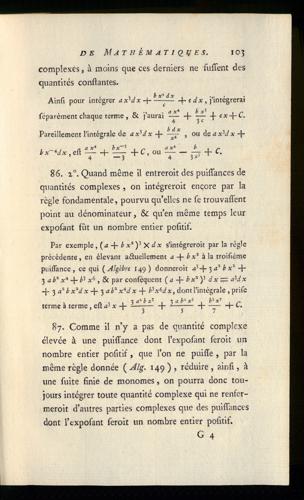 DE MATHÉMATIQUES. 103
complexes, à moins que ces derniers ne fussent des
quantités constantes.
Ainsi pour intégrer a x³ d x + b x² d x / c + e d x, j'intégrerai
séparément chaque terme, & j'aurai a x⁴ / 4 + b x³ / 3 c + e x + C.
Pareillement l'intégrale de a x³ d x + b d x / x⁴, ou de a x³ d x +
b x⁻⁴ d x, est a x⁴ / 4 + b x⁻³ / −3 + C, ou a x⁴ / 4 − b / 3 x³ + C.
86. 2°. Quand même il entreroit des puissances de
quantités complexes, on intégreroit encore par la
règle fondamentale, pourvu qu'elles ne se trouvassent
point au dénominateur, & qu'en même temps leur
exposant fût un nombre entier positif.
Par exemple, (a + b x²)³ × d x s'intégreroit par la règle
précédente, en élevant actuellement a + b x² à la troisième
puissance, ce qui (Algèbre 149) donneroit a³ + 3 a² b x² +
3 a b² x⁴ + b³ x⁶, & par conséquent (a + b x²)³ d x = a³ d x
+ 3 a² b x² d x + 3 a b² x⁴ d x + b³ x⁶ d x, dont l'intégrale, prise
terme à terme, est a³ x + 3 a² b x³ / 3 + 3 a b² x⁵ / 5 + b³ x⁷ / 7 + C.
87. Comme il n'y a pas de quantité complexe
élevée à une puissance dont l'exposant seroit un
nombre entier positif, que l'on ne puisse, par la
même règle donnée (Alg. 149), réduire, ainsi, à
une suite finie de monomes, on pourra donc tou-
jours intégrer toute quantité complexe qui ne renfer-
meroit d'autres parties complexes que des puissances
dont l'exposant seroit un nombre entier positif.
G 4